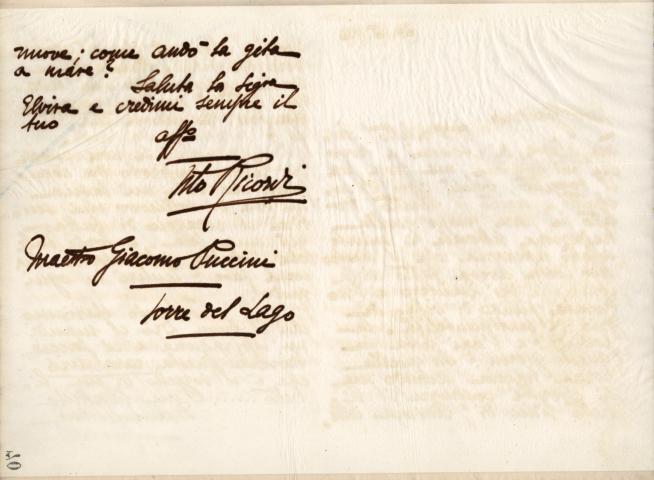 nuove; come andò la gita
a mare?
Saluta la Sigra
Elvira e credimi sempre il
tuo
affº
Tito Ricordi
Maestro Giacomo Puccini
Torre del Lago